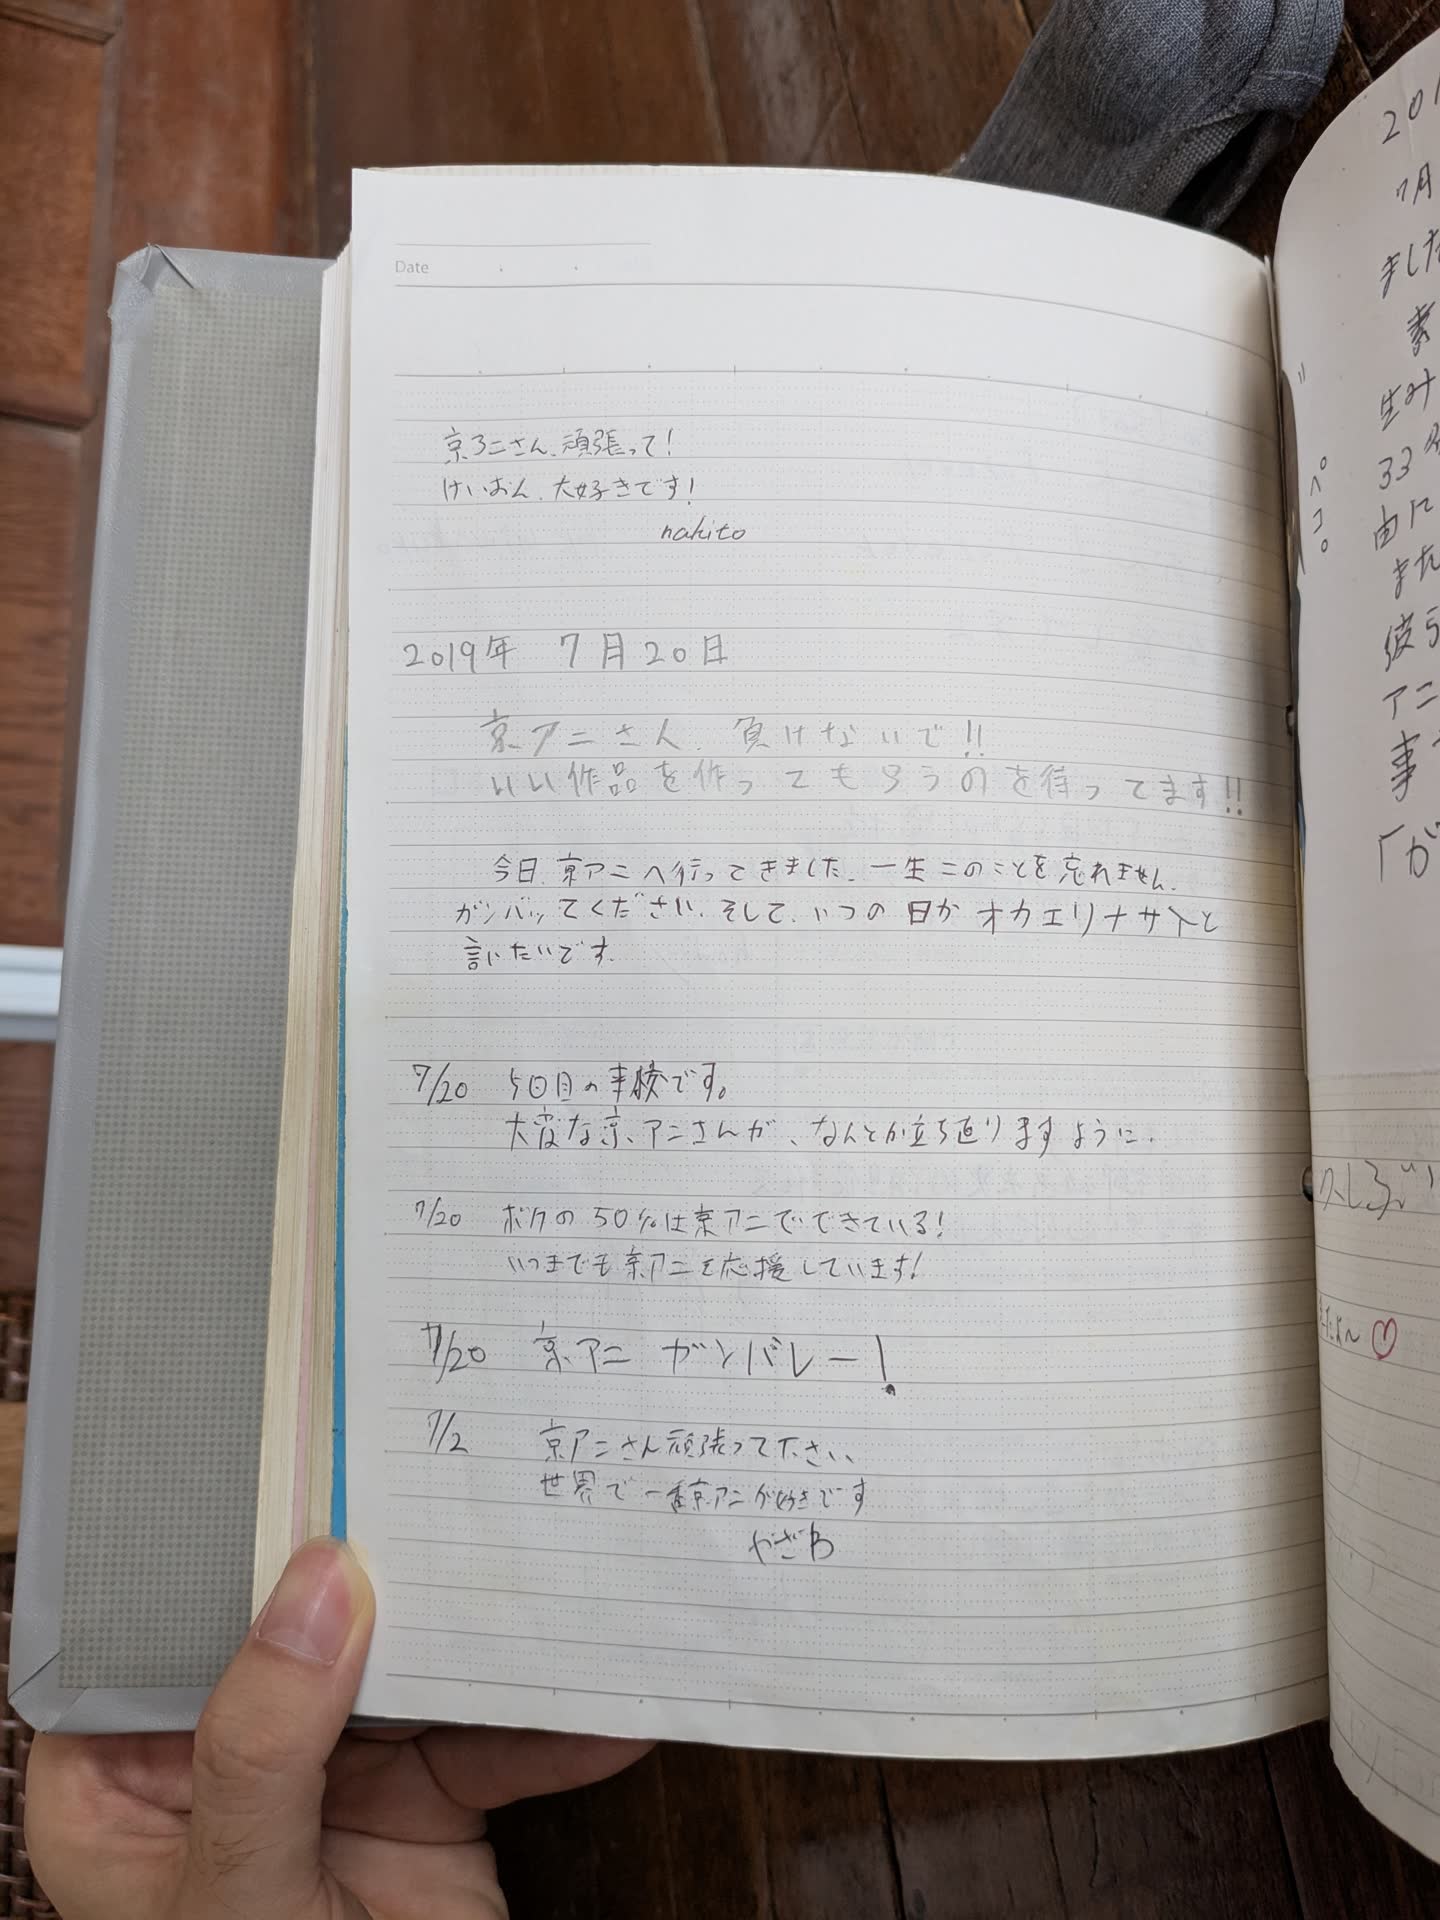 Date
京アニさん、頑張って!
けいおん、大好きです!
nakito
2019年 7月20日
京アニさん、負けないで!!
いい作品を作ってもらうのを待ってます!!
今日、京アニへ行ってきました。一生このことを忘れません。
ガンバッてください。そして、いつの日かオカエリナサイと
言いたいです。
7/20 5回目の豊校です。
大変な京アニさんが、なんとか立ち直りますように。
7/20 ボクの50%は京アニでできている!
いつまでも京アニを応援しています!
7/20 京アニ ガンバレー!
7/2 京アニさん頑張って下さい、
世界で一番京アニが好きです
やざわ
201
7月
ました
素
生み
33名
由に
また
彼ら
アニ
事
「が